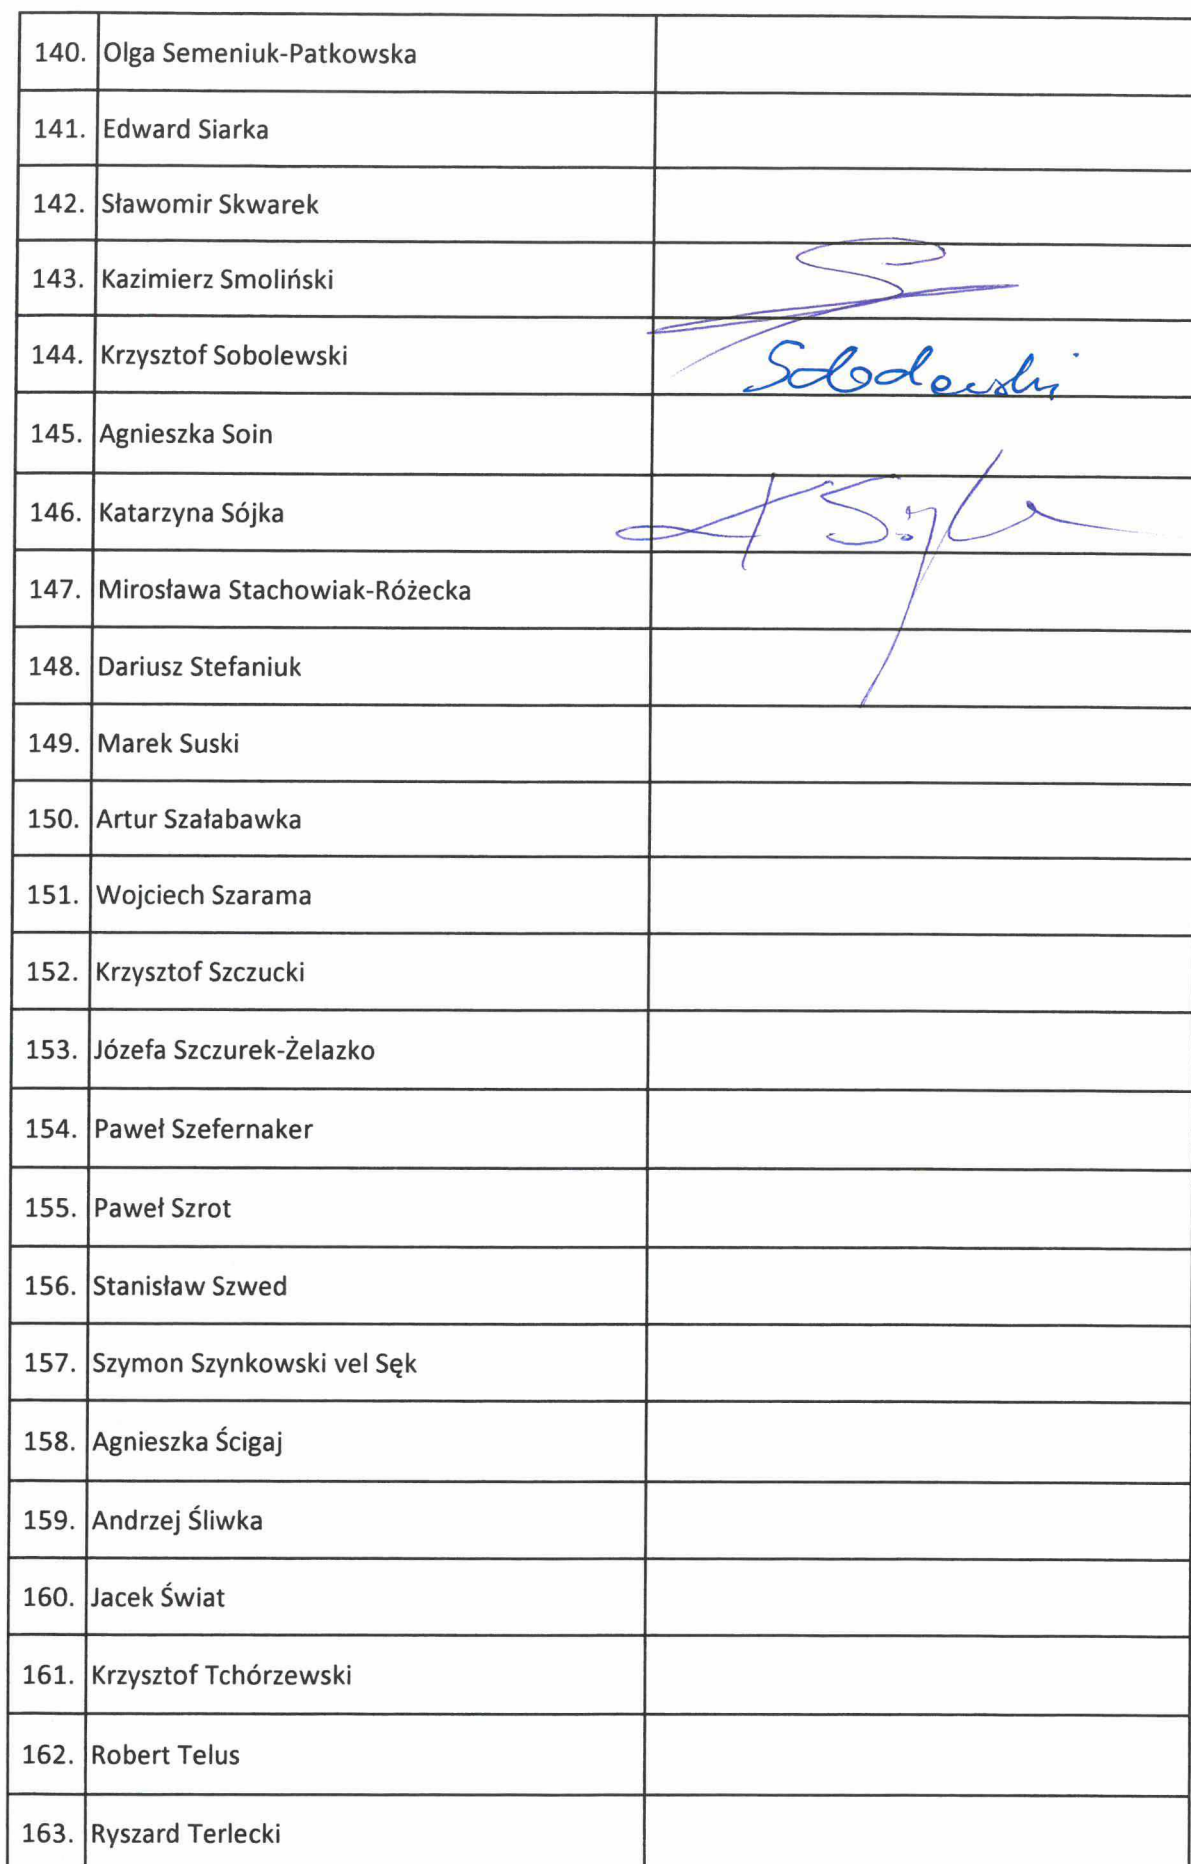 140. Olga Semeniuk-Patkowska
141. Edward Siarka
142. Sławomir Skwarek
143. Kazimierz Smoliński
144. Krzysztof Sobolewski
145. Agnieszka Soin
146. Katarzyna Sójka
147. Mirosława Stachowiak-Różecka
148. Dariusz Stefaniuk
149. Marek Suski
150. Artur Szałabawka
151. Wojciech Szarama
152. Krzysztof Szczucki
153. Józefa Szczurek-Żelazko
154. Paweł Szefernaker
155. Paweł Szrot
156. Stanisław Szwed
157. Szymon Szynkowski vel Sęk
158. Agnieszka Ścigaj
159. Andrzej Śliwka
160. Jacek Świat
161. Krzysztof Tchórzewski
162. Robert Telus
163. Ryszard Terlecki